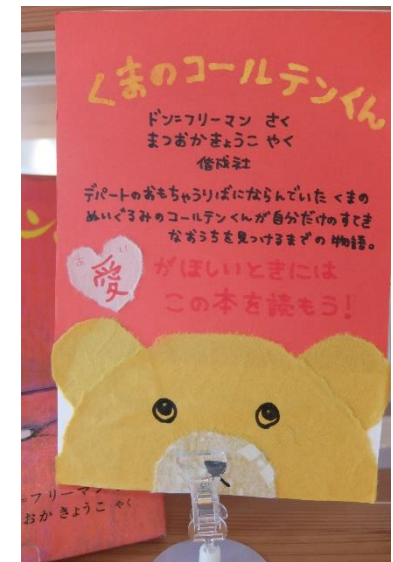 くまのコールテンくん
ドン=フリーマン さく
まつおかきょうこ やく
偕成社
デパートのおもちゃうりばにならんでいた くまの
ぬいぐるみのコールテンくんが自分だけのすてき
なおうちを見つけるまでの物語。
あい
愛がほしいときには
この本を読もう!
ン
=フリーマン
おか きょうこ やく